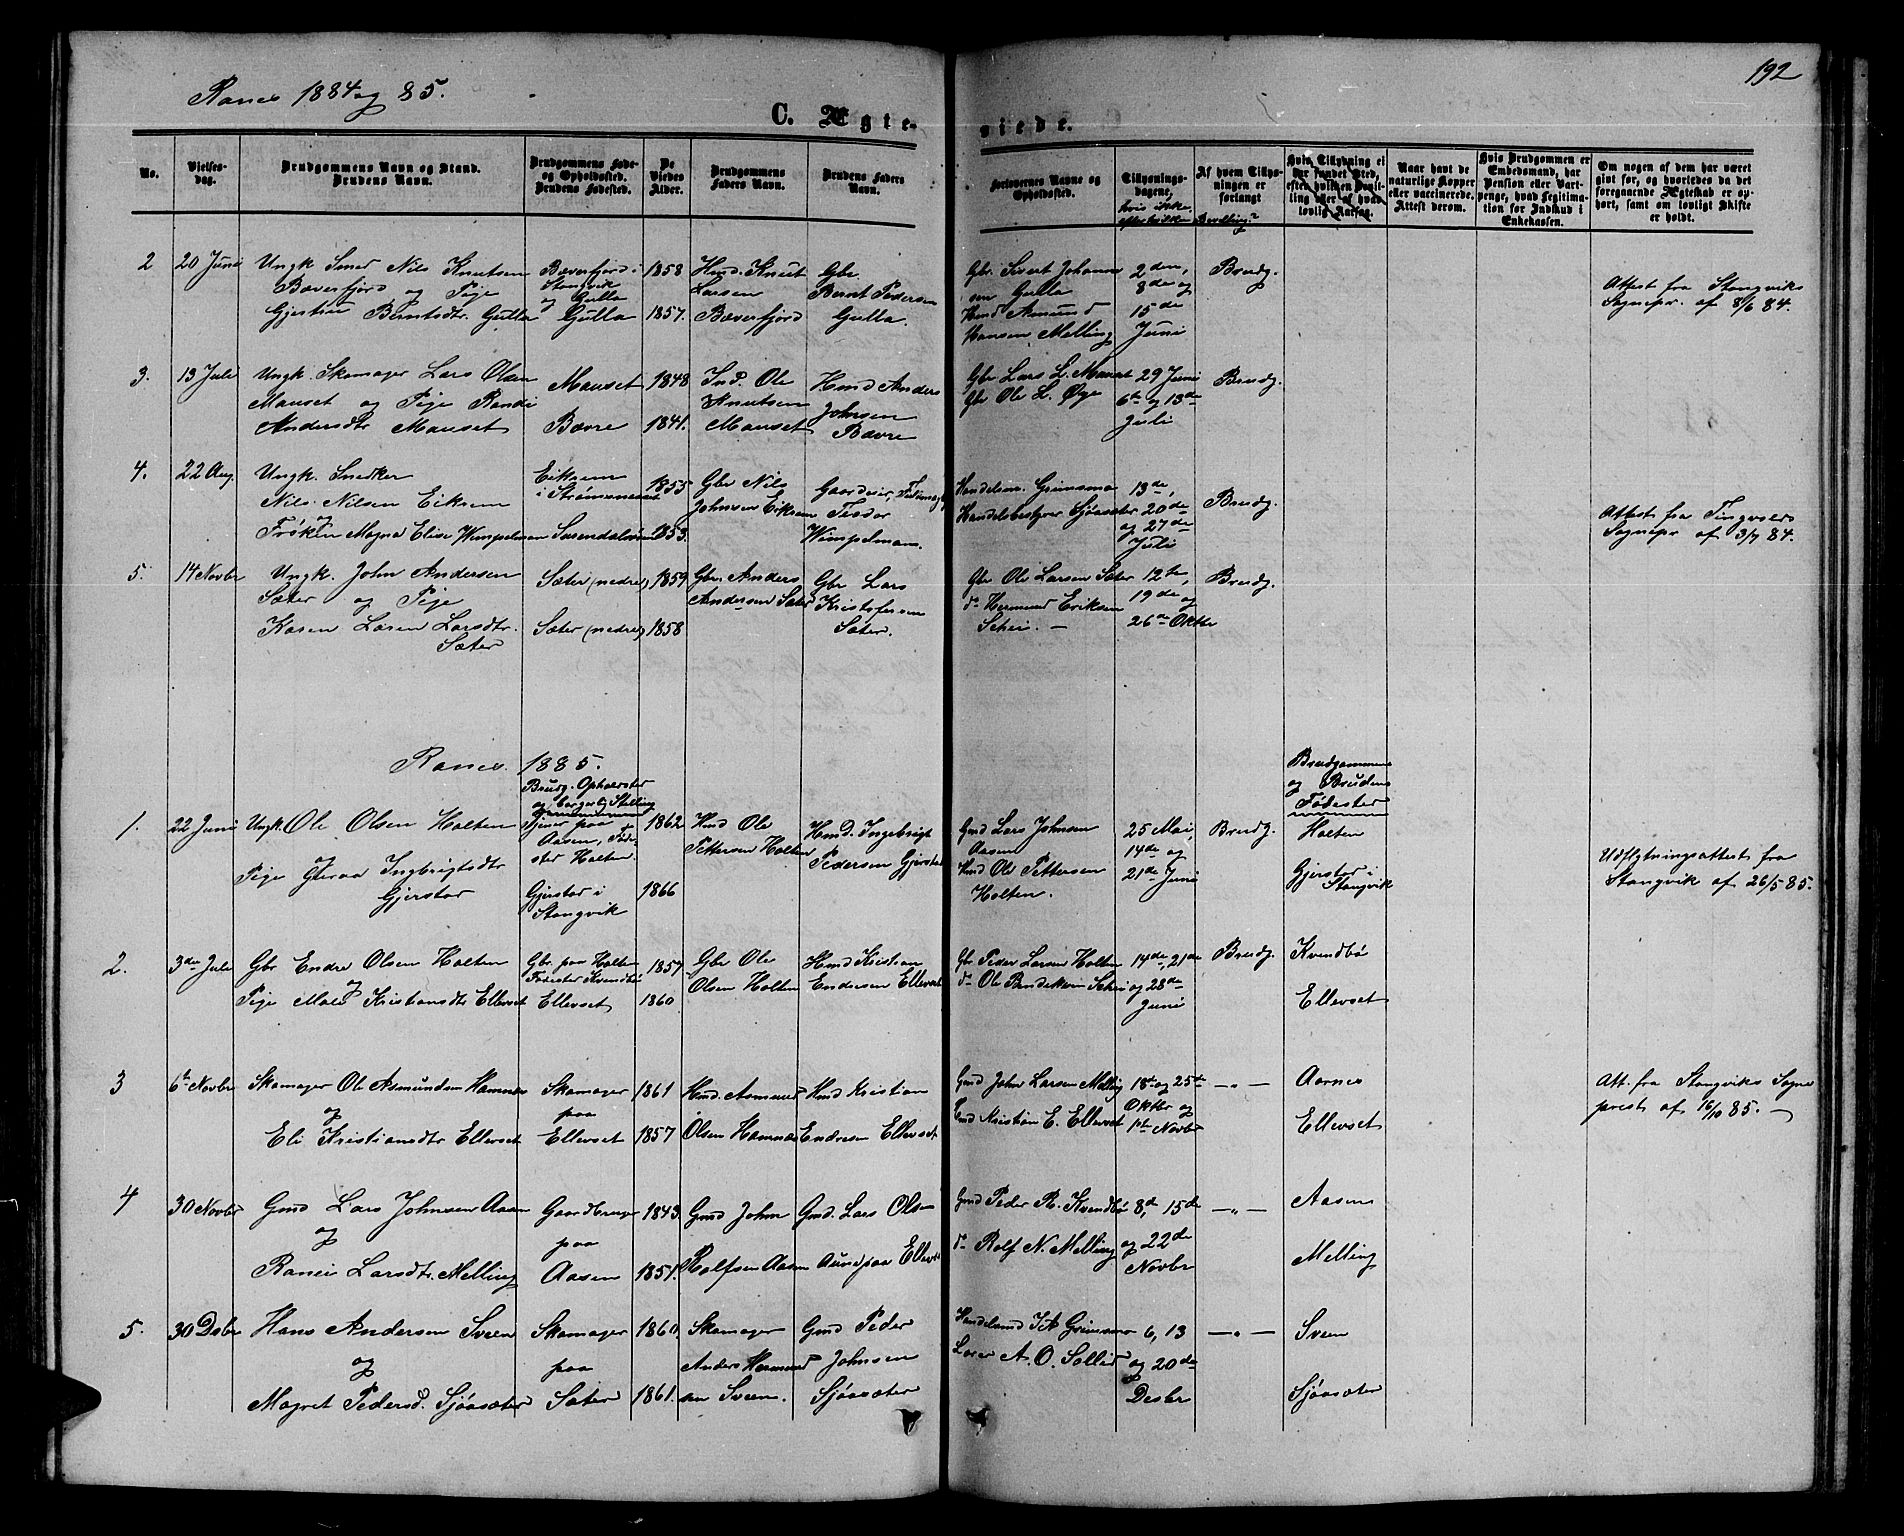 192
Ranes 1884 og 85.
C. Ægteviede.
No.
Vielsesdag.
Brudgommens Navn og Stand.
Brudens Navn.
Brudgommens Føde- og Opholdssted.
Brudens Fødested.
De Viedes Alder.
Brudgommens Faders Navn.
Brudens Faders Navn.
Forlovernes Navne og Opholdssted.
Tillysningsdagene, hvis ikke efter hvilken Bevilling?
Af hvem Tillysningen er forlangt
Hvis Tillysning ei har fundet Sted, efter hvilken Bevilling eller af hvad lovlig Aarsag.
Naar havt de naturlige Kopper eller vaccinerede. Attest derom.
Hvis Brudgommen er Embedsmand, har Pension eller Vartpenge, hvad Legitimation for Indskud i Enkekassen.
Om nogen af dem har været gift før, og hvorledes da det foregaaende Ægteskab er ophørt, samt om lovligt Skifte er holdt.
2
20 Juni
Ungk Smed Nils Knutsen
Bæverfjord og Pige
Gjertine Berntsdtr. Gulla
Bæverfjord i
Stangvik
og Gulla
Gulla
1858
1857.
Hmd. Knut
Larsen
Bæverfjord
Gbr
Bernt Pedersen
Gulla.
Gbr. Sivert Johannesen
Gulla
Hmd Asmund
Hansen Melling
2den,
8de og
15de
Juni
Brudg.
Attest fra Stangviks
Sognepr. af 8/6 84.
3.
13 Juli
Ungk. Skomager Lars Olsen
Mauset og Pige Randi
Andersdtr Mauset
Mauset
Bævre
1848
1841.
Ind. Ole
Knutsen
Mauset
Hmd Anders
Johnsen
Bævre
Gbr Lars L. Mauset
Gbr Ole L. Øye
29 Juni
6te og 13de
Juli
Brudg.
4.
22 Aug.
Ungk. Snedker
Nils Nilsen Eiksem
og
Frøken Magna Elise Wimpelman
Eiksem
i Strømsneset
Surendalsøren
1855
1853.
Gbr Nils
Johnsen Eiksem
Gaardeier,
Teodor
Wimpelman.
Handelsm. Grimsmo
Handelsbestyrer Sjøasæter
13de,
20de
og 27de
Juli
Brudg.
Attest fra Tingvolds
Sognepr af 3/7 84.
5.
14 Novbr
Ungk. John Andersen
Sæter og Pige
Karen Larsdtr.
Sæter
Sæter (nedre)
Sæter (nedre)
1859
1858
Gbr. Anders
Andersen Sæter
Gbr Lars
Kristofersen
Sæter.
Gbr Ole Larsen Sæter
do Hermund Eriksen
Schei. —
12te,
19de og
26de Oktbr
Brudg.
Ranes 1885.
Brudg. Opholdsster
og borgerlig Stilling
Brudgommens
og Brudens
Fødester
1.
22 Juni
Ungk. Ole Olsen Holten
og
Pige Guroa Ingbrigtsdtr
Gjerstad
Tjener paa
Aasen, Føde-
ster Holten.
Gjerstad i
Stangvik
1862
1866
Hmd Ole
Pettersen Holten
Hmd. Ingebrigt
Pedersen Gjerstad
Gmd Lars Johnsen
Aasen
Hmd Ole Pettersen
Holten.
25 Mai,
14de og
21de Juni
Brudg.
Holten
Gjerstad i
Stangvik
Udflytningsattest fra
Stangvik af 26/5 85.
2.
3die Juli
Gbr Endre Olsen Holten
og
Pige Mali Kristiansdtr Ellevset
Gbr. paa Holten
Fødester Kvendbø
Ellevset
1857
1860
Gbr Ole
Olsen Holten
Hmd Kristian
Endresen Ellevset
Gbr Peder Larsen Holten
do Ole Bendiksen Schei
14de, 21de
og 28de
Juni
Brudg.
Kvendbø
Ellevset
3
6te Novbr
Skomager Ole Asmundsen Hamnes
og
Eli Kristiansdtr Ellevset
Skomager
paa
Ellevset
1861
1857
Hmd. Asmund
Olsen Hamnes
Hmd Kristian
Endresen Ellevset
Gmd John Larsen Melling
Hmd Kristian E. Ellevset
18de og 25de
Oktbr og
1ste Novbr
—„—
Aarnes
Ellevset
Att. fra Stangviks Sogne
prest af 16/10 85. —
4
30 Novbr
Gmd Lars Johnsen Aasen
og
Ranei Larsdtr. Melling
Gaardbruger
paa
Aasen
1843.
1851.
Gmd John
Rolfsen Aasen
Gmd. Lars Olsen
Aune paa Ellevset
Gmd Peder R. Kvendbø
do Rolf N. Melling
8de, 15de
og 22de
Novbr
—„—
Aasen
Melling
5.
30 Debr
Hans Andersen Sveen
og
Magret Pedersd. Sjøasæter
Skomager
paa
Sæter
1860.
1861.
Skomager
Anders Hermund
sen Sveen.
Gmd Peder
Johnsen
Sjøasæter
Handelsmd I. A Grimsmo
Lærer A. O. Sollid
6, 13
og 20de
Desbr
—„—
Sveen
Sjøasæter